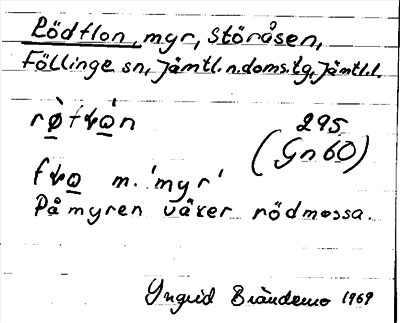 Rödflon, myr, Störåsen,
Föllinge sn, Jämtl. n. doms. tg, Jämtl. l.
295
(Gn 60)
m. 'myr'
På myren växer rödmossa.
Yngrid Brändemo 1969